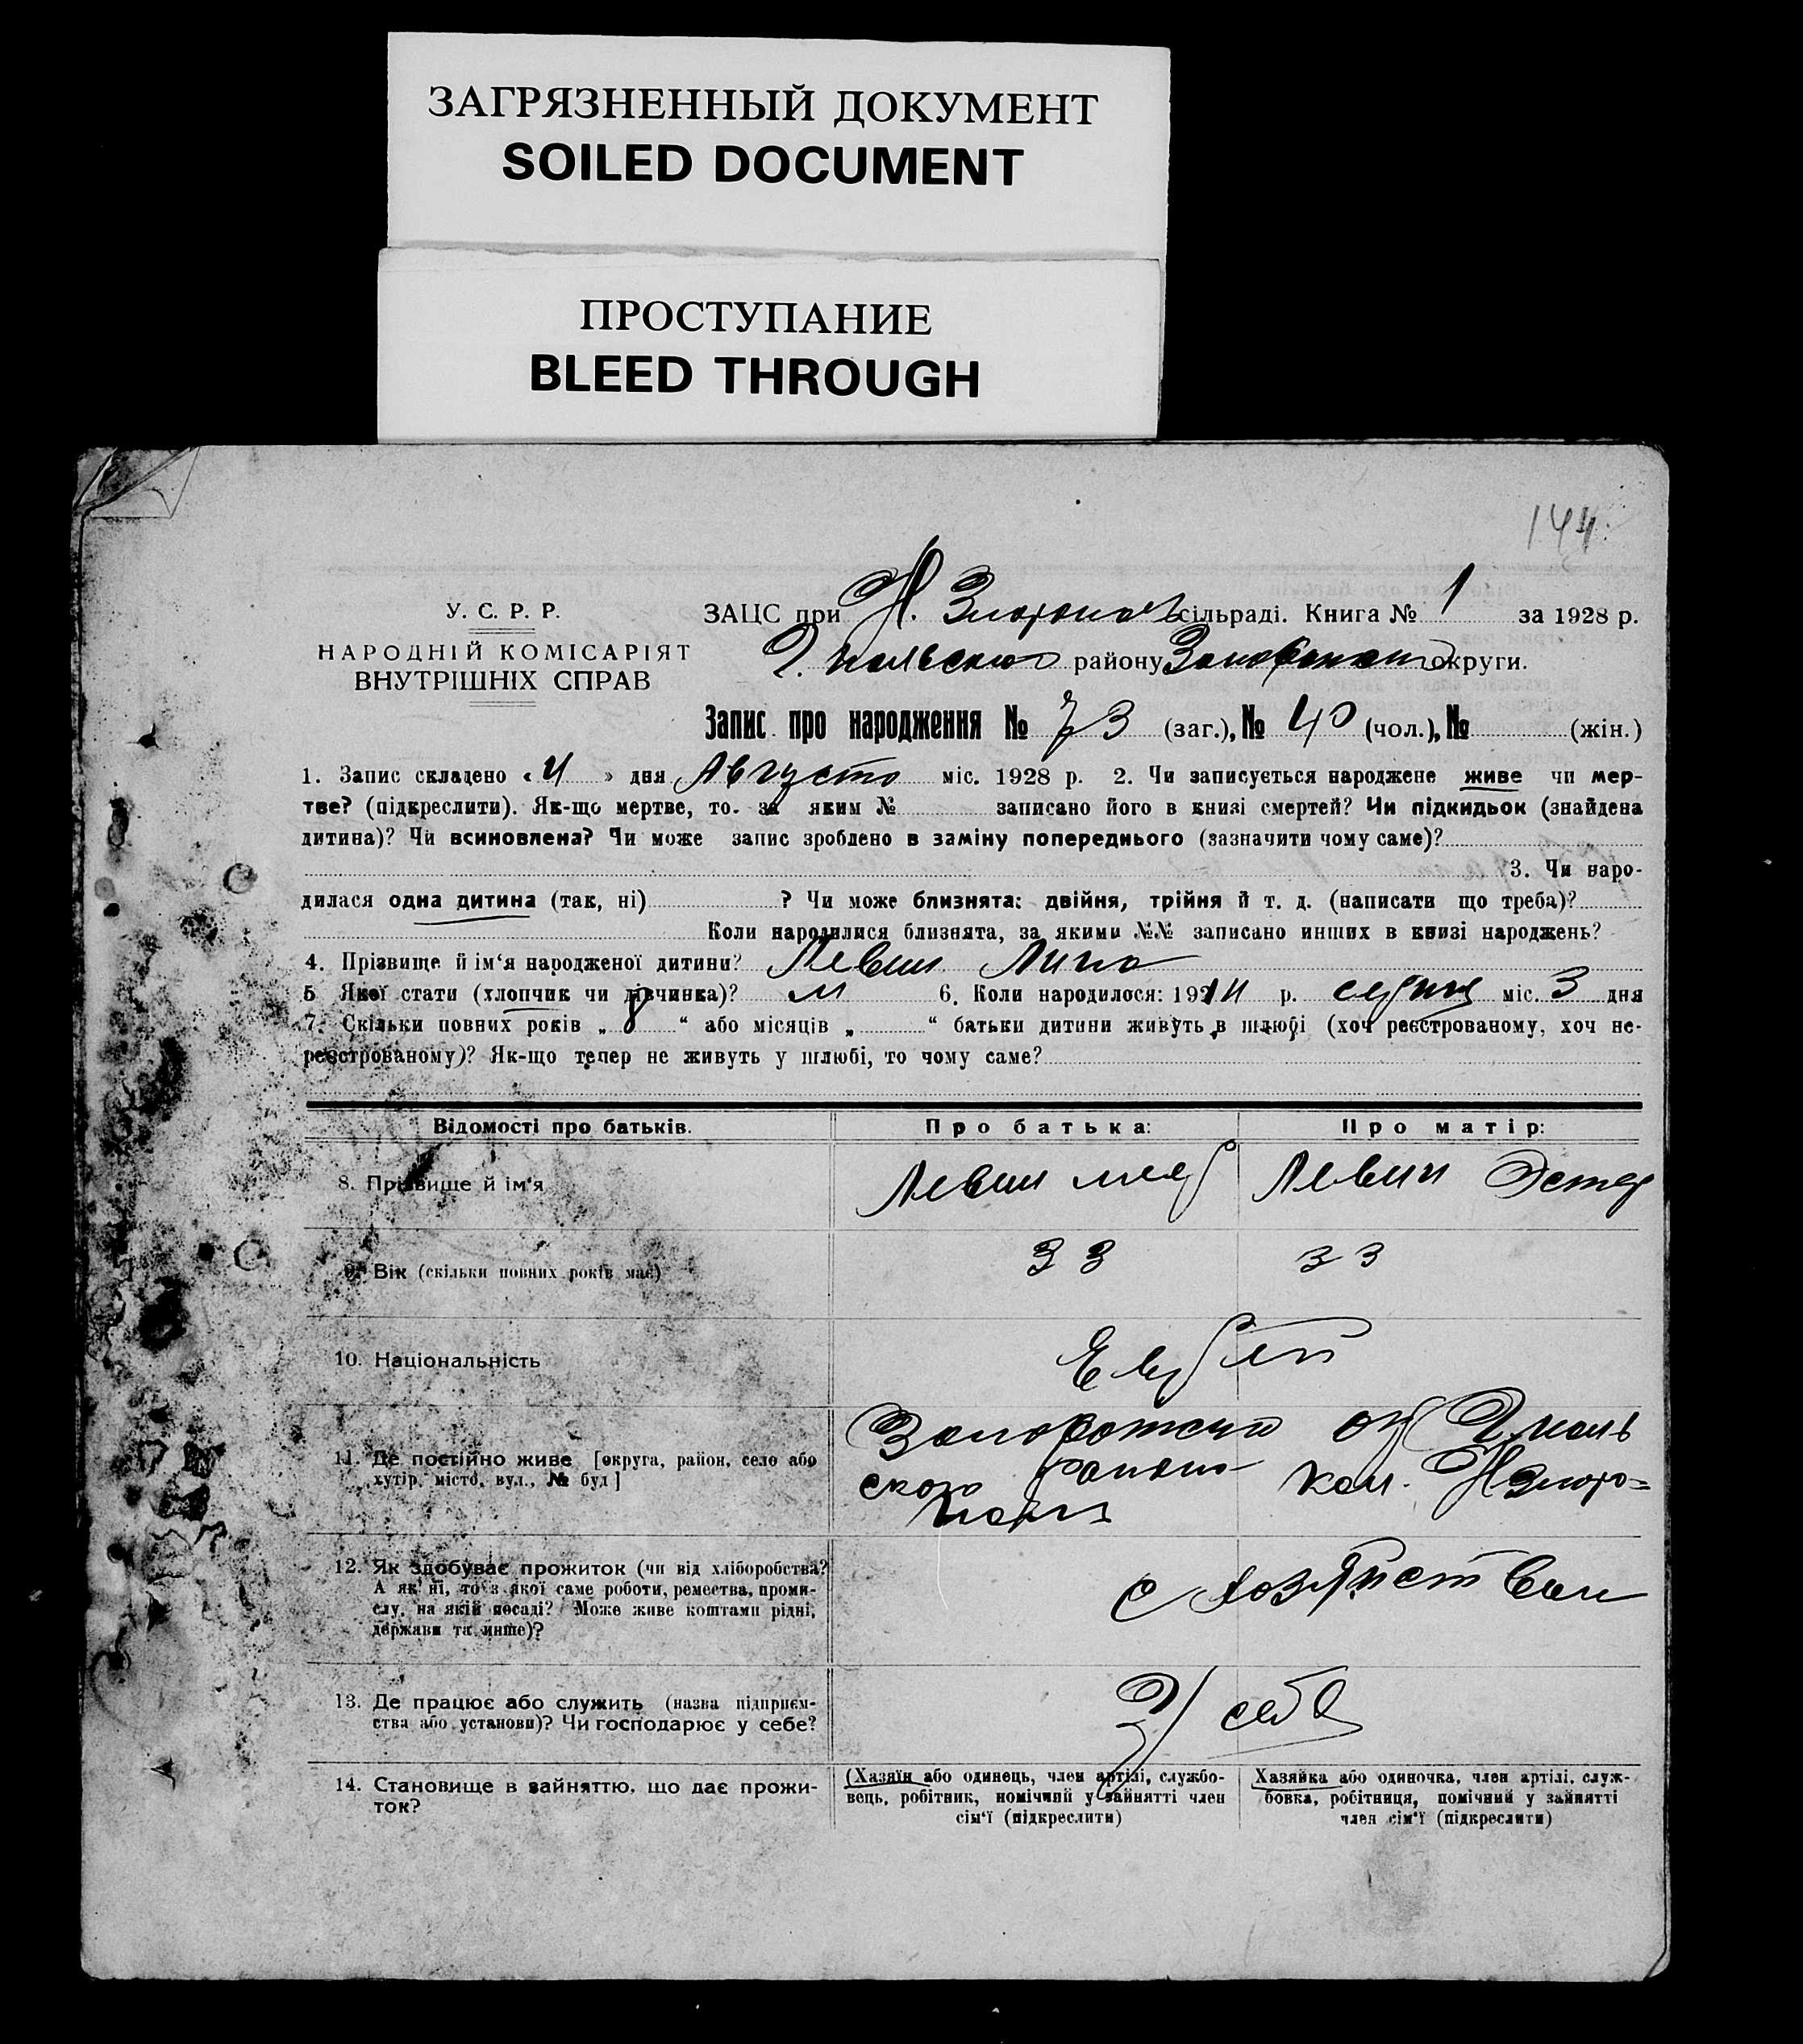 ЗАГРЯЗНЕННЫЙ ДОКУМЕНТ
SOILED DOCUMENT
ПРОСТУПАНИЕ
BLEED THROUGH
144.
У. С. Р. Р.
НАРОДНІЙ КОМІСАРІЯТ
ВНУТРІШНІХ СПРАВ
ЗАЦС при Н. сільраді. Книга № 1 за 1928 р.
району округи.
Запис про народження № 73 (заг.), № 40 (чол.), № (жін.)
1. Запис складено « 4 » дня Августа міс. 1928 р. 2. Чи записується народжене живе чи мер-
тве? (підкреслити). Як-що мертве, то за яким № записано його в книзі смертей? Чи підкидьок (знайдена
дитина)? Чи всиновлена? Чи може запис зроблено в заміну попереднього (зазначити чому саме)?
3. Чи наро-
дилася одна дитина (так, ні) ? Чи може близнята: двійня, трійня й т. д. (написати що треба)?
Коли народилися близнята, за якими №№ записано инших в книзі народжень?
4. Прізвище й ім'я народженої дитини? Левин
5 Якої стати (хлопчик чи дівчинка)? м 6. Коли народилося: 192 р. міс. 3 дня
7. Скільки повних років „ 8 “ або місяців „ “ батьки дитини живуть в шлюбі (хоч реєстрованому, хоч не-
реєстрованому)? Як-що тепер не живуть у шлюбі, то чому саме?
Відомості про батьків.
Про батька:
Про матір:
8. Прізвище й ім'я
Левин
Левин Эстер
9. Вік (скільки повних років має)
33
33
10. Національність
Еврей
11. Де постійно живе [округа, район, село або
хутір, місто, вул., № буд]
Запорожский ок
ского района кол.
12. Як здобуває прожиток (чи від хліборобства?
А як ні, то з якої саме роботи, ремества, проми-
слу, на якій посаді? Може живе коштами рідні,
держави та инше)?
13. Де працює або служить (назва підприєм-
ства або установи)? Чи господарює у себе?
У себе
14. Становище в зайняттю, що дає прожи-
ток?
(Хазяїн або одинець, член артілі, службо-
вець, робітник, помічний у зайнятті член
сім'ї (підкреслити)
Хазяйка або одиночка, член артілі, служ-
бовка, робітниця, помічний у зайнятті
член сім'ї (підкреслити)